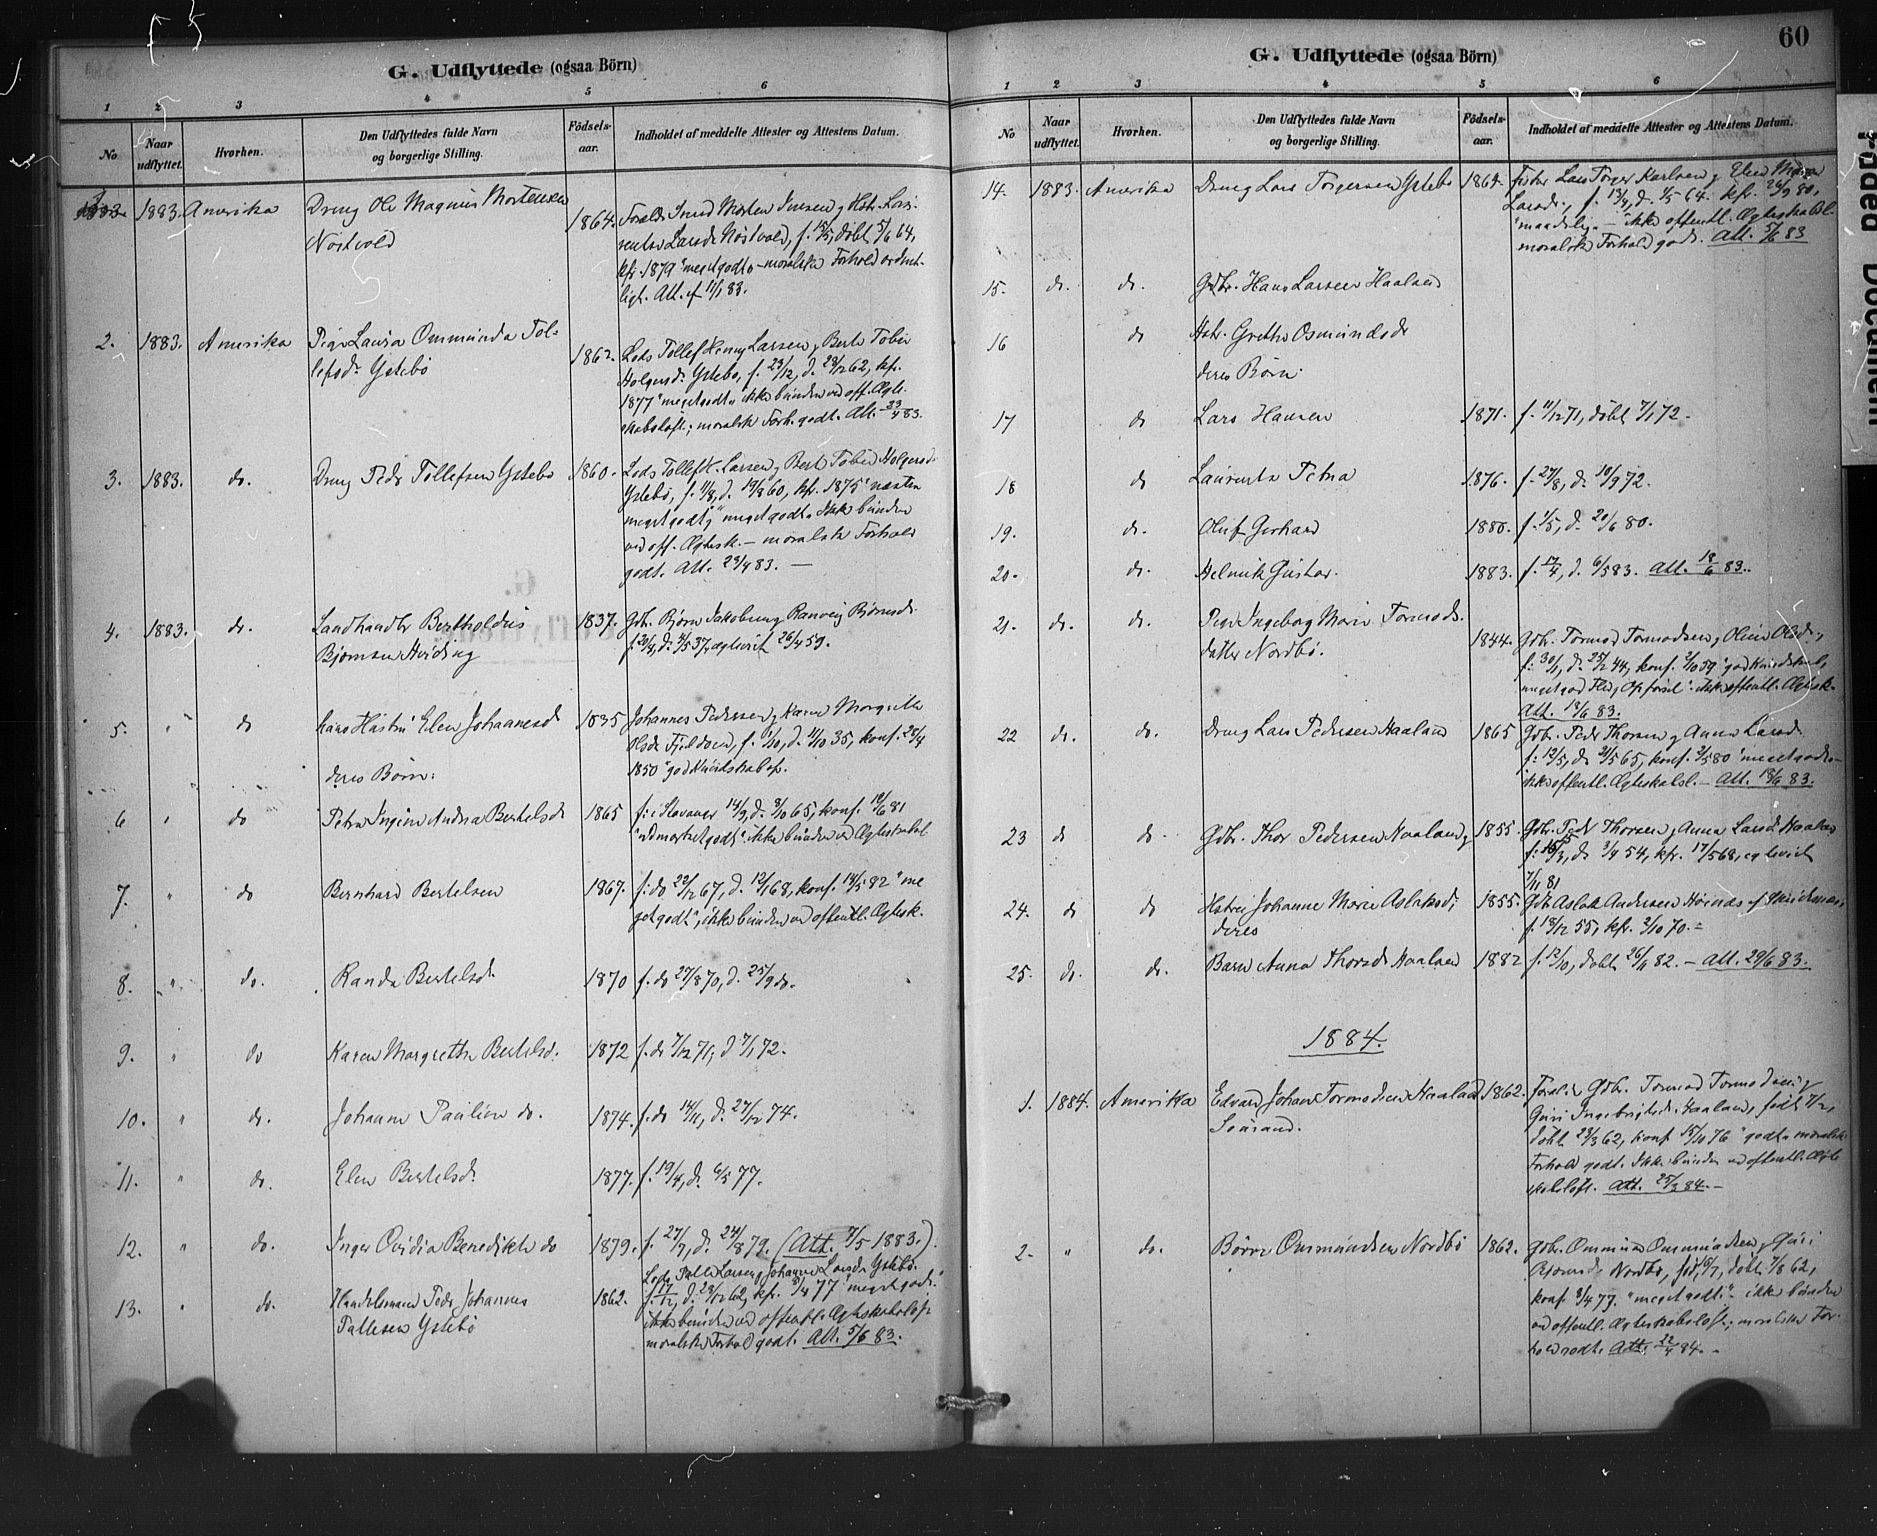 G. Udflyttede (ogsaa Börn)
1 2 3 4 5 6
No
Naar udflyttet.
Hvorhen.
Den Udflyttedes fulde Navn
og borgerlige Stilling.
Födsels-
aar.
Indholdet af meddelte Attester og Attestens Datum.
1883. Amerika Dreng Ole Magnus Mortensen
Nøstvold
1864.
sentse Larsdr Nøstvold, f. døbt 5/6 64,
kfr. 1879 "megetgodt" - moralske Forhold ordent-
ligt. Att. 83.
2. 1883. Amerika Pige Laura Ommunda Tol-
lefsdr Ystebø
1862. Lods Tollef Henry Larsen, Berte Tobia
Holgersdr Ystebø, f. 23/12, d. 62, kfr.
1877 "megetgodt" ikke bunden ved off. Ægte-
skabsløft.; moralsk Forh. godt. Att. 23/4 83.
3. 1883. do. Dreng Peder Tollefsen Ystebø 1860. Lods Tollef H. Larsen, Bert Tobia Holgersd.
Ystebø, f. 11/8, d. 19/8 60, kfr. 1875 "næsten
megetgodt", megetgodt. Ikke bunden
ved off. Ægtesk. - moralsk Forhold
godt. Att. 23/4 83. -
4. 1883. do. Landhandler Bertholdus
Bjørnsen Hviding
1837. Gbr. Bjørn Jakobsen, Ranveig Bjørnsdr.
f. 20/4, d. 4/5 37, egteviet 26/4 59.
5. " do hans Hustru Elen Johannesd 1835 Johannes Pedersen, Karen Margrethe
Olsdr Fjeldøen, f. 1/10, d. 11/10 35, konf. 28/4
1850 "god Kundskab".
deres Børn:
6 " do Petra Ingine Andrea Bertelsdr 1865 f. i Stavanger 14/9, d. 8/10 65, konf. 81
"udmærketgodt" ikke bunden ved Ægteskabsl
7. " do Bernhard Bertelsen 1867. f. do 22/12 67, d. 12/1 68, konf. 14/5 82 "me
getgodt", ikke bunden ved offentl. Ægtesk.
8. " do. Randi Bertelsd. 1870 f. do 27/8 70, d. 25/9 do.
9. " do Karen Margrethe Bertelsd. 1872 f. do 7/12 71, d 7/1 72.
10. " do. Johanne Pauline do. 1874. f. do 14/11, d. 27/12 74.
11. " do. Elen Bertelsd. 1877. f. 19/4, d. 6/5 77.
12. " do. Inger Ovidia Benedikte do 1879. f. 27/7, d. 24/8 79. (Att. 7/5 1883.)
13. " do. Handelsmand Peder Johannes
Tallesen Ystebø
1862. Lods Talle Larsen, Johanne Larsdr Ystebø.
f. 17/12, d. 28/12 62, kfr. 8/4 77 "megetgodt"
ikke bunden ved offentl. Ægteskabsløft
moralske Forhold godt. Att. 5/6 83.
G. Udflyttede (ogsaa Börn)
60
1 2 3 4 5 6
No
Naar udflyttet.
Hvorhen.
Den Udflyttedes fulde Navn
og borgerlige Stilling.
Födsels-
aar.
Indholdet af meddelte Attester og Attestens Datum.
14. 1883. Amerika Dreng Lars Torgersen Ystebø 1864. Lars Torger Karlsen, Elen
Larsdr, f. 13/4, d. 1/5 64. kfr. 80,
ikke offentl. Ægteskabsl.
moralske Forhold godt. Att. 5/6 83
15. do. do. Gdbr. Hans Larsen Haaland
16 do Hstr. Grethe Osmundsdr
deres Børn:
17 do Lars Hansen 1871. f. 11/12 71, døbt 7/1 72.
18 do Laurentse Petra 1876. f. 27/8, d. 10/9 72.
19. do. Oluf Gerhard 1880. f. 1/5, d. 20/6 80.
20. do. Helmik Gustav. 1883. f. 17/4, d. 6/5 83. Att. 18/6 83.
21. do. do. Pige Ingeborg Marie Tormods
datter Nordbø.
1844. Gbr. Tormod Tormodsen, Oline Olsdr,
f. 30/1, d. 25/2 44, konf. 2/10 59 "god Kundskab,
meget god Flid, Opførsel". ikke offentl. Ægtesk.
Att. 18/6 83.
22 do. do. Dreng Lars Pedersen Haaland 1865 Gbr. Peder Thorsen, Anna Larsd.
f. 12/5, d. 21/5 65, konf. 2/5 80 "megetgodt"
ikke offentl. Ægteskabsl. - Att. 18/6 83.
23 do do. Gdbr. Thor Pedersen Haaland, 1855. Gbr. Peder Thorsen, Anna Larsd. Haaland
d. 2/4 54, kfr. 17/5 68, egteviet
7/11 81
24. do do Hstru Johanne Marie Aslaksd, 1855. Gbr Aslak Andersen
f. 18/12 55, kfr. 2/10 70. -
deres
25. do. do. Barn Anna Thorsdr Haaland 1882 f. 12/10, døbt 26/11 82. - Att. 29/6 83.
1884.
1. 1884. Amerika Edvard Johan Tormodsen Haaland
1862. Foræld. Gdbr. Tormod Tormodsen,
Guri Ingebrigtsdr Haaland, født 7/2,
døbt 23/3 62, konf 15/10 76 "godt" moralsk
Forhold godt. Ikke bunden ved offentl. Ægte
skabsløft. Att. 25/3 84. -
2. " do. Børre Ommundsen Nordbø 1862. Gdbr. Ommund Ommundsen, Guri
Nordbø, fød, døbt 7/8 62,
konf 8/4 77. "megetgodt" - ikke bunden
ved offentl. Ægteskabsløft; moralske For-
hold godt. Att. 22/4 84. -